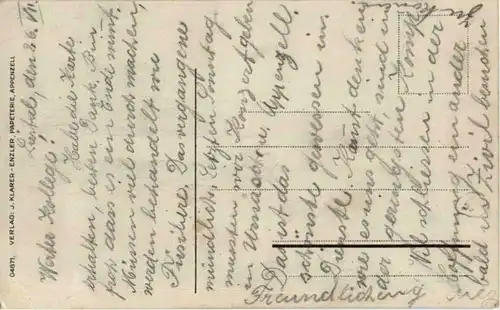 (0487), VERLAG: J. KLARER-ENZLER, PAPETERIE, APPENZELL
Liestal, den 26. VII
Werter Kollege!
Habe die Karte
erhalten besten Dank. Bin
froh dass es ein Ende nimt.
Müssen viel durch machen,
werden behandelt wie
Das vergangene
mündlich. Letzten Sonntag
mussten wir Konzert geben
in Urnäsch u. Appenzell.
Das ist das
schönste gewessen im
Dienste. Kanst denken
wie es uns geht, sind in
der Komp.
Wil schliessen in der
Hoffnung ein ander
bald in Zivil
Freundlichen